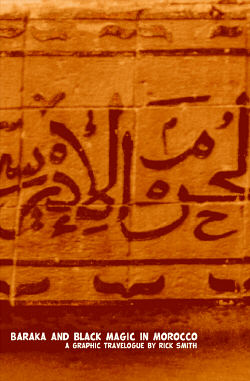 لحرم الإدريس
BARAKA AND BLACK MAGIC IN MOROCCO
A GRAPHIC TRAVELOGUE BY RICK SMITH